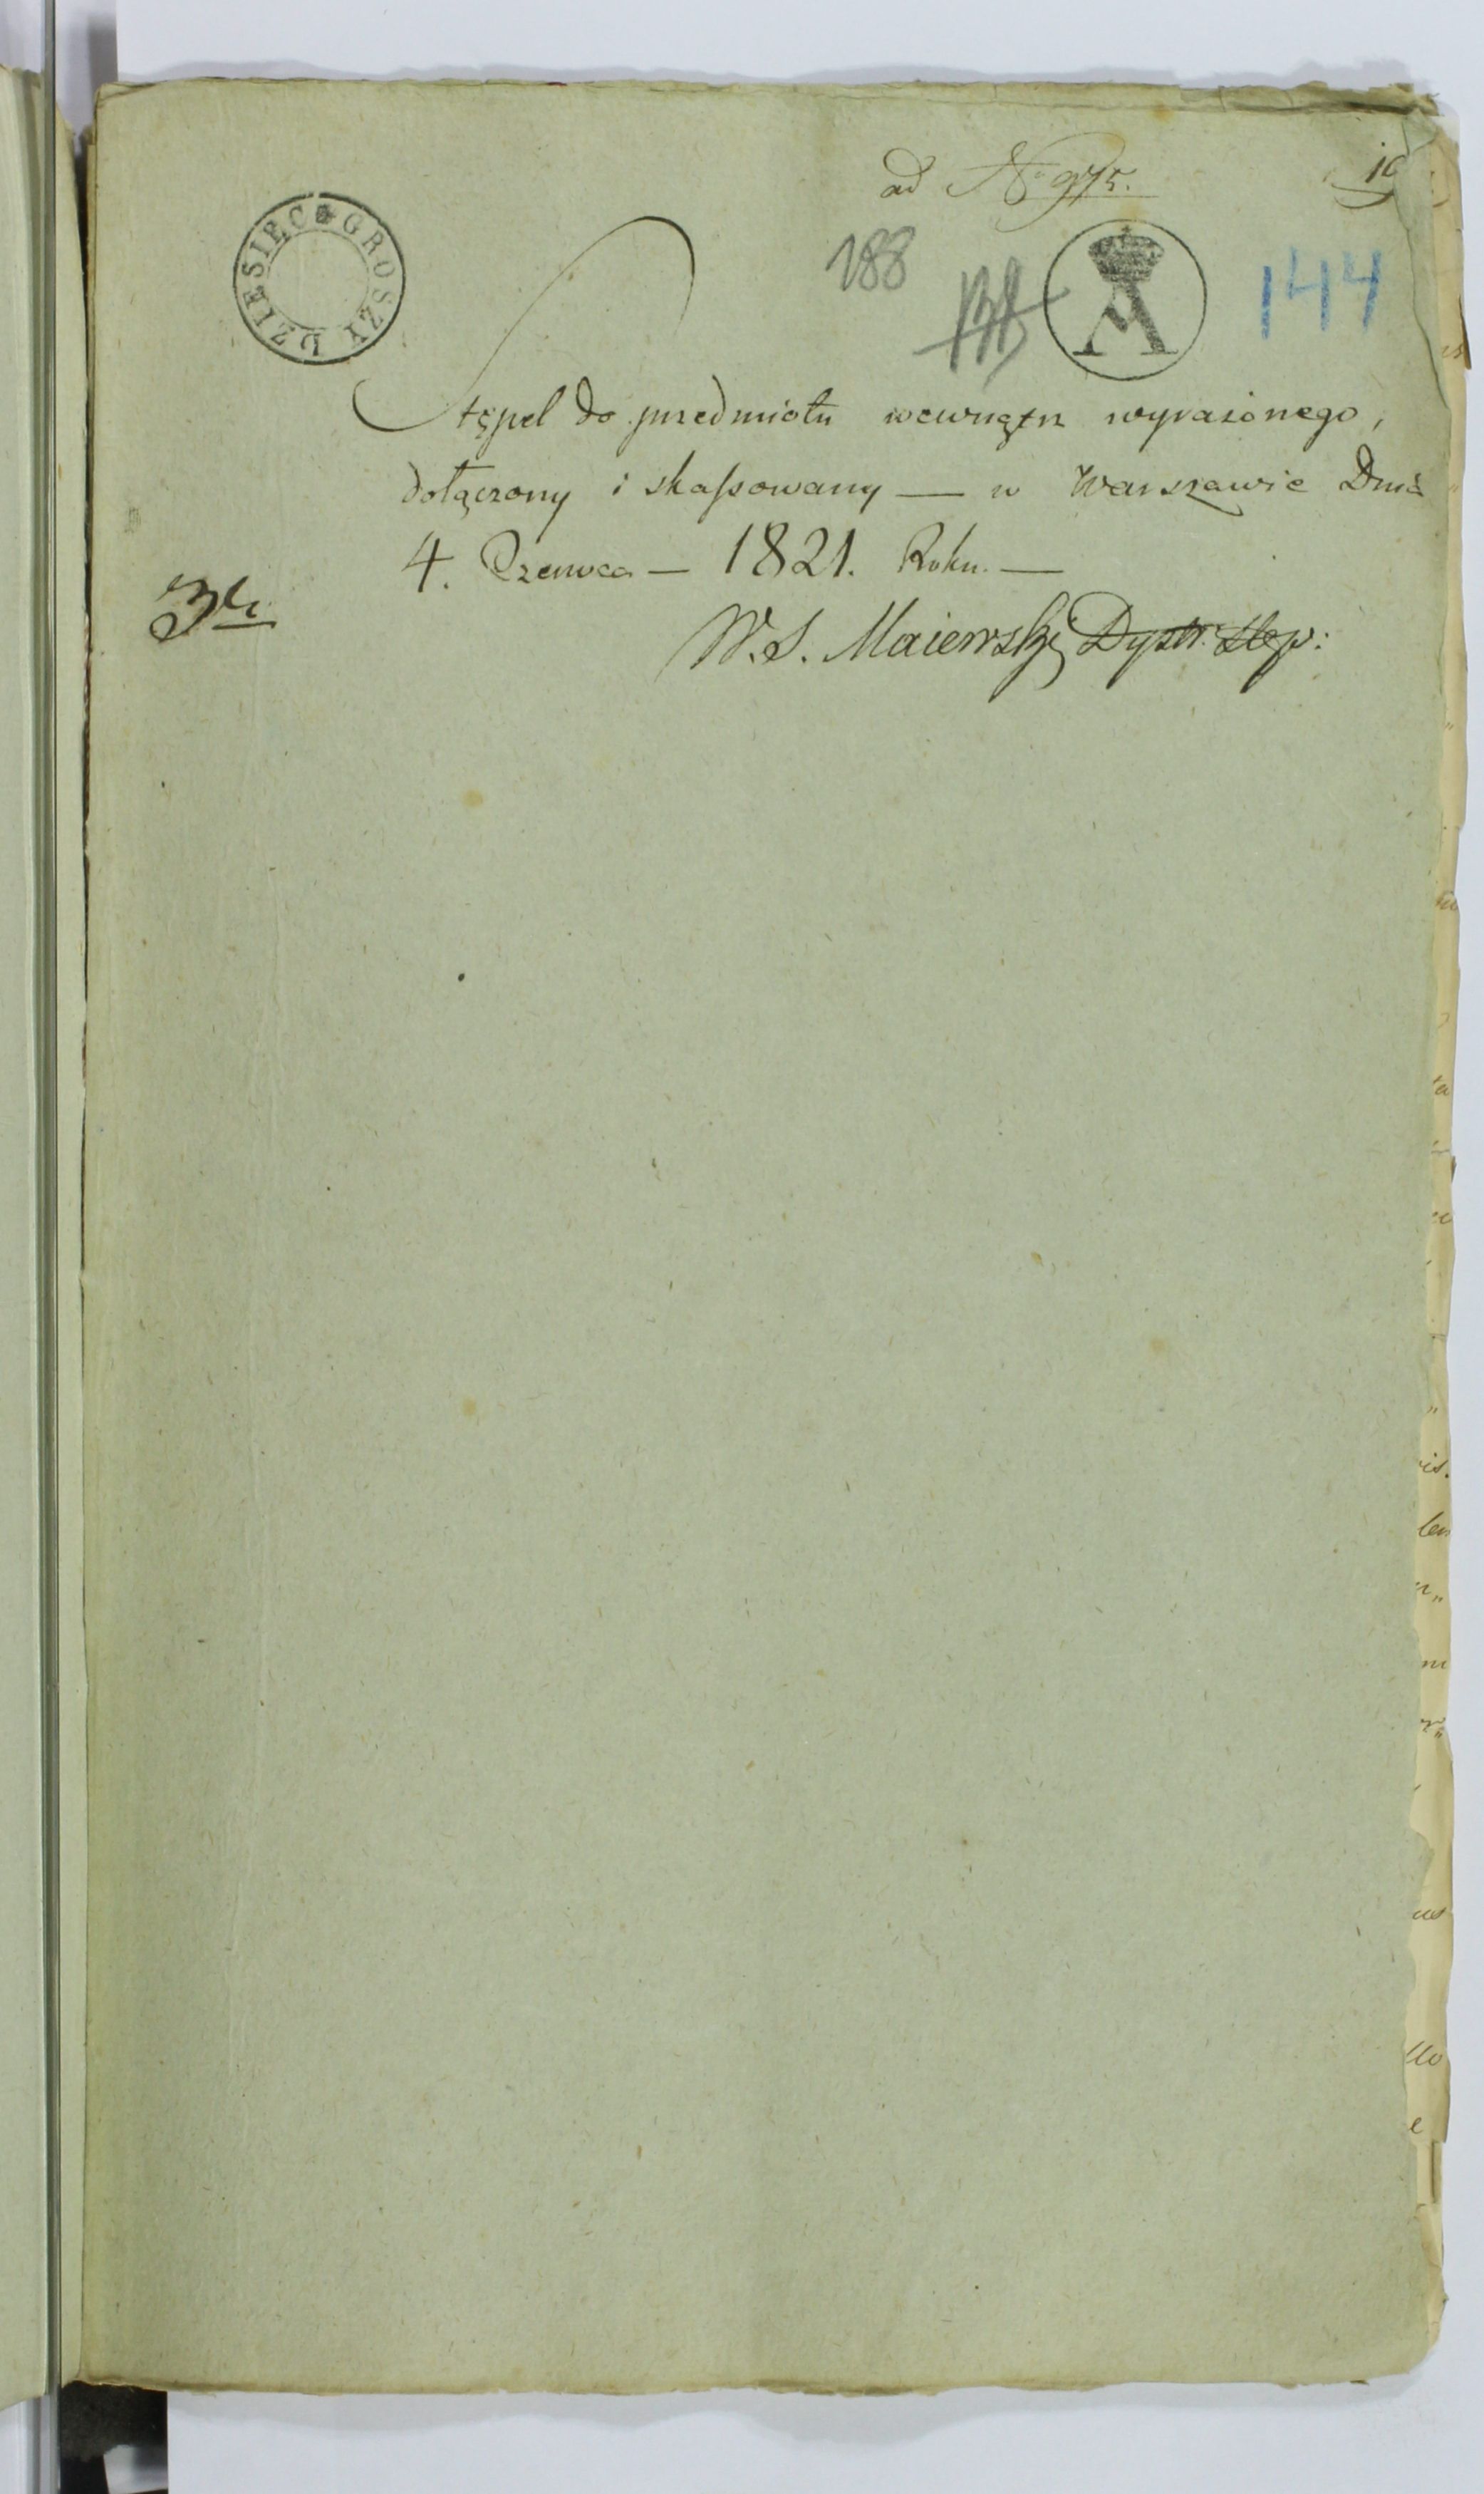 ad No 975.
DZIESIĘĆ GROSZY
188
A
144
Stępel do przedmiotu wewnątrz wyrażonego,
dołączony i skassowany — w Warszawie Dnia
4. Czerwca — 1821. Roku. —
W. S. Maiewski Dystr. Stęp: